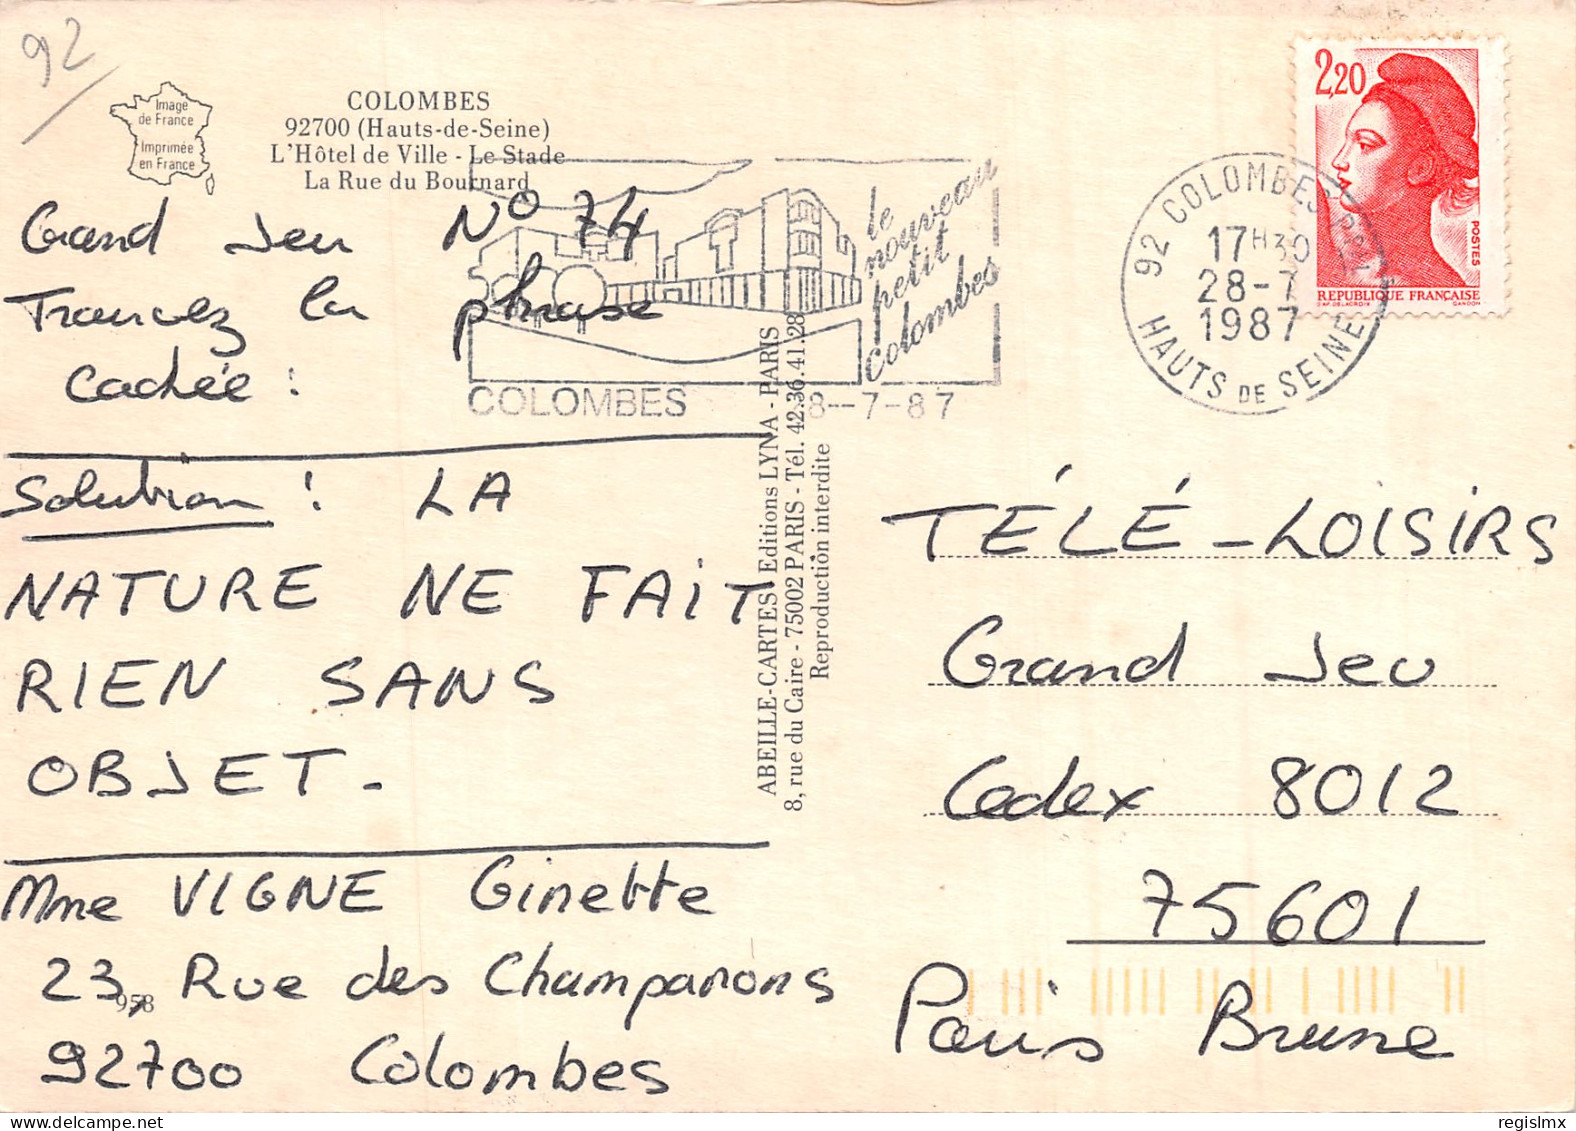 92
Image
de France
Imprimée
en France
COLOMBES
92700 (Hauts-de-Seine)
L'Hôtel de Ville - Le Stade
La Rue du Bournard
Grand Jeu N° 74
Trouvez la phrase
cachée :
Solution : LA
NATURE NE FAIT
RIEN SANS
OBJET -
Mme VIGNE Ginette
23, Rue des Champarons
92700 Colombes
le
nouveau
petit
colombes
COLOMBES 8-7-87
ABEILLE-CARTES Editions LYNA - PARIS
8, rue du Caire - 75002 PARIS - Tél. 42.36.41.28
Reproduction interdite
2,20
POSTES
REPUBLIQUE FRANÇAISE
DAP. DELACROIX GANDON
92 COLOMBES PPAL
17H30
28-7
1987
HAUTS DE SEINE
TÉLÉ-LOISIRS
Grand Jeu
Cedex 8012
75601
Paris Brune
regislmx